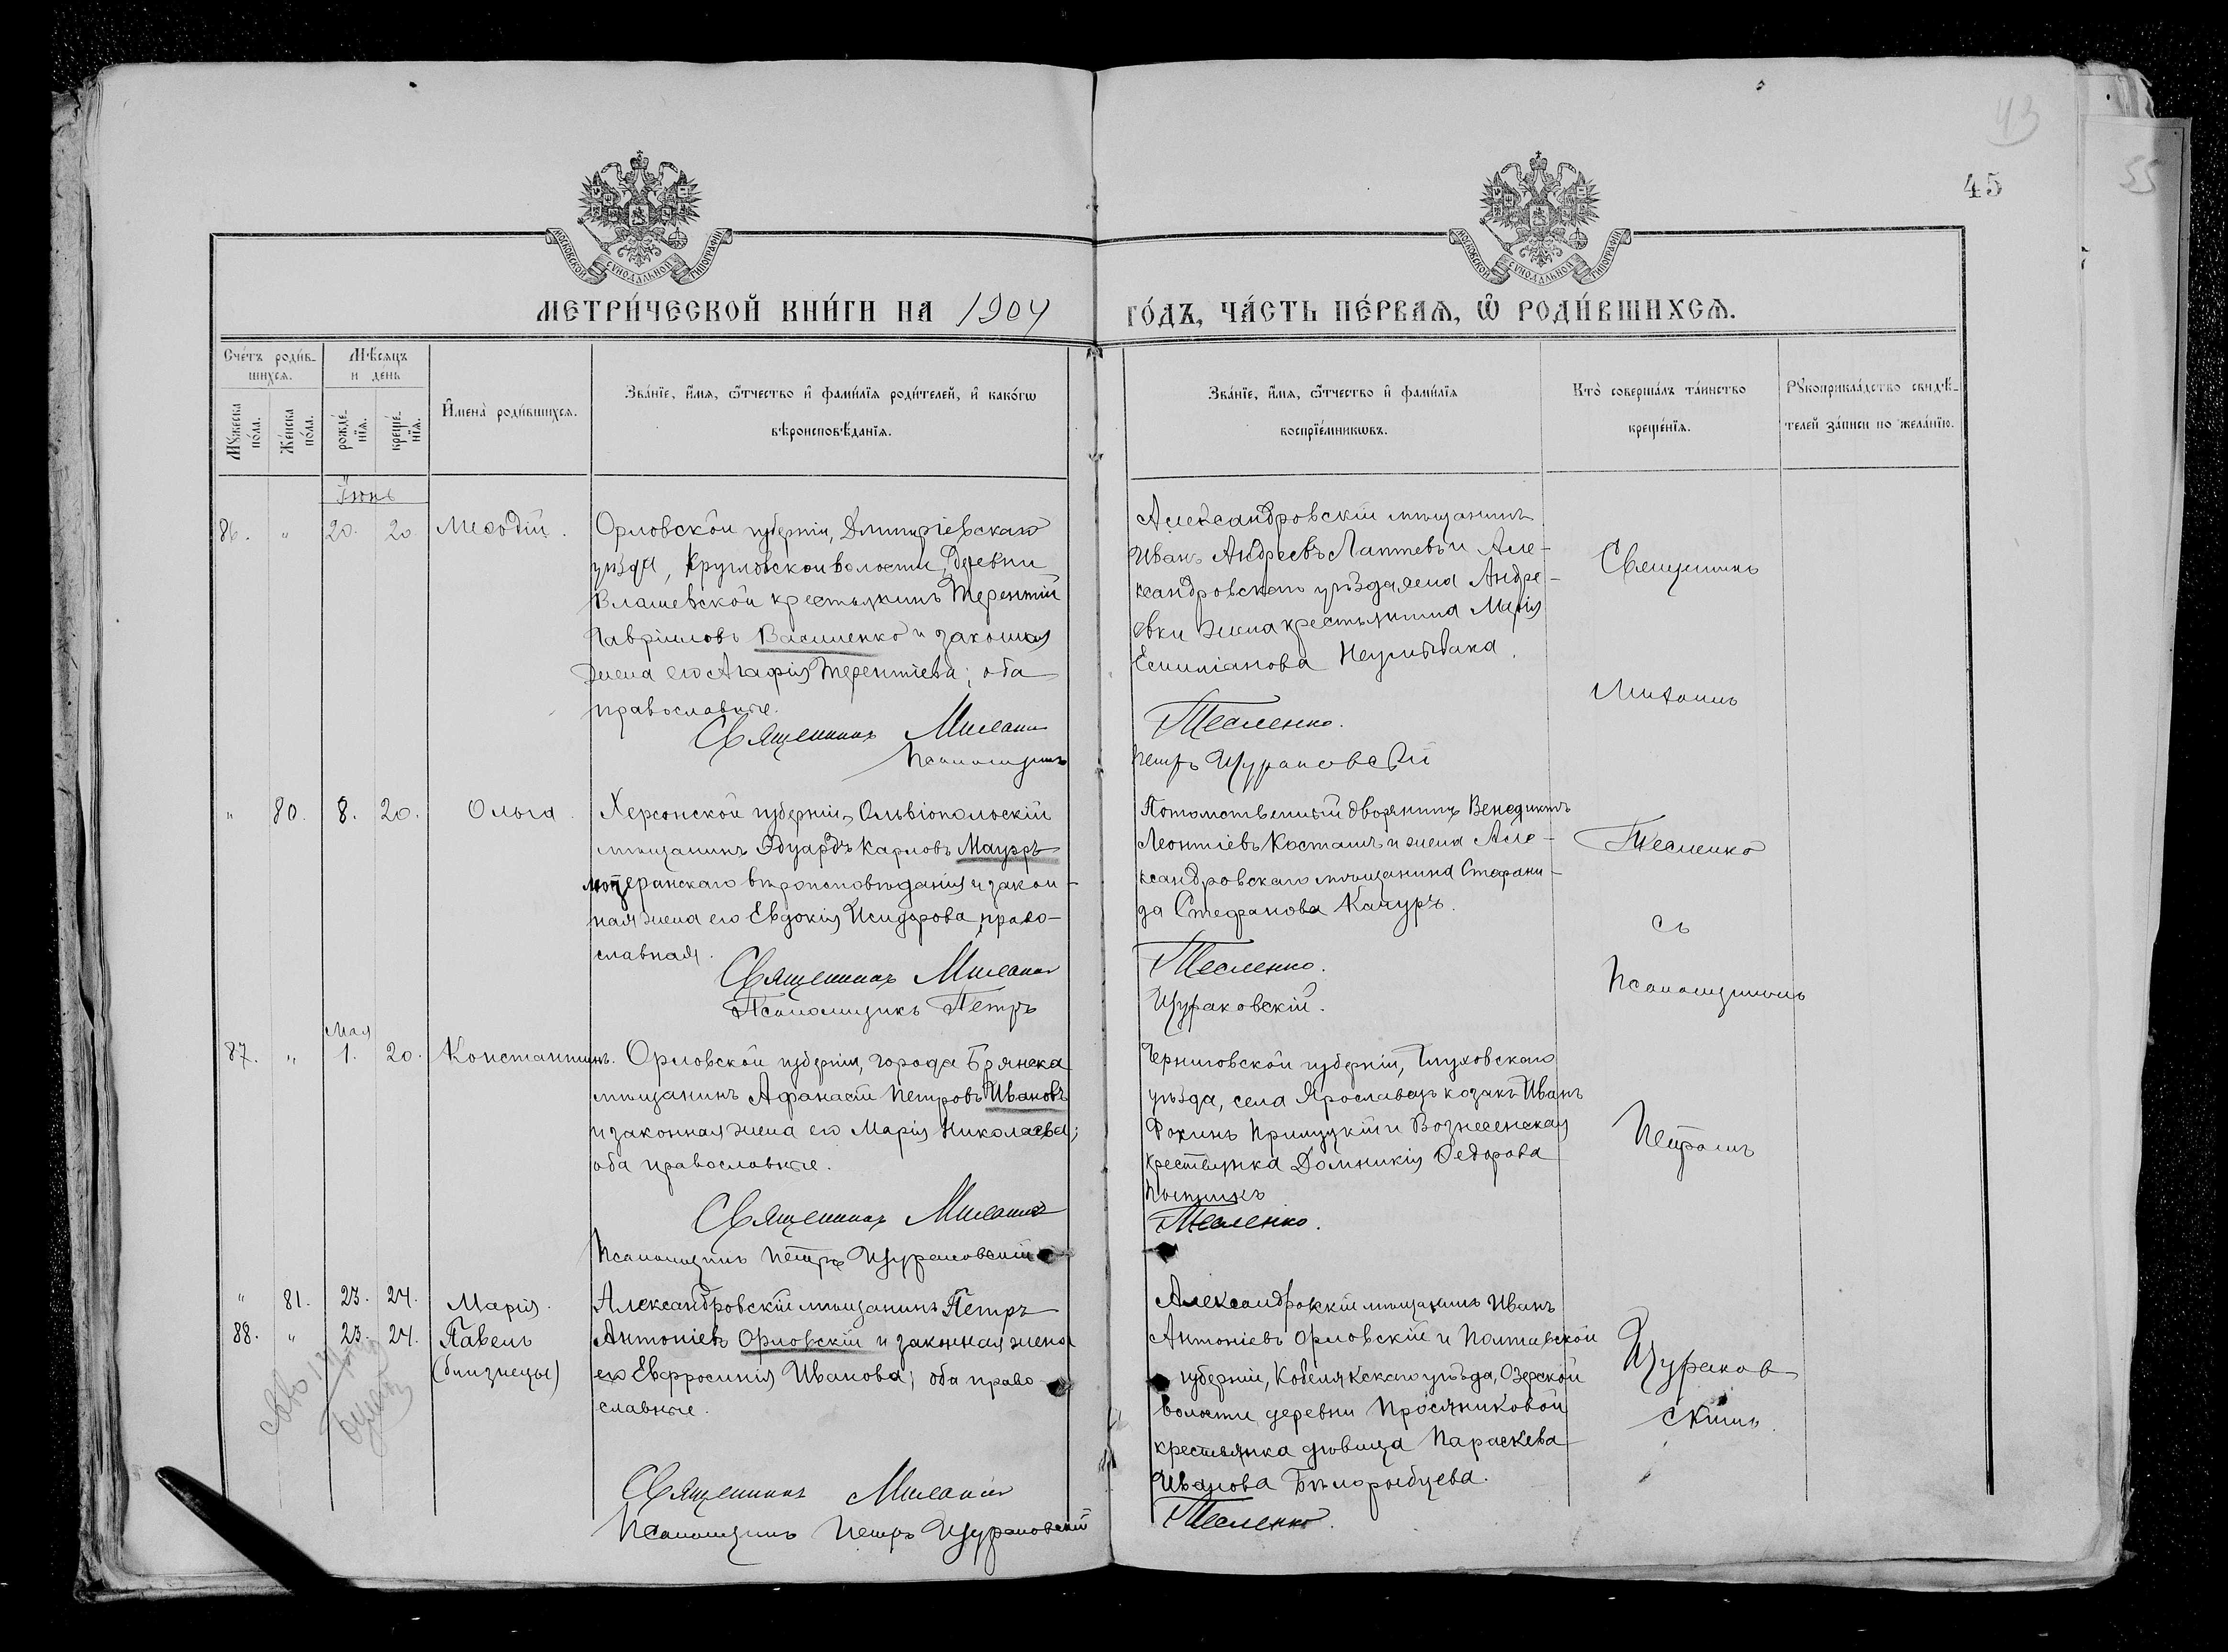 43
45
55
МОСКОВСКОЙ СУНОДАЛЬНОЙ ТИПОГРАФІИ
МОСКОВСКОЙ СУНОДАЛЬНОЙ ТИПОГРАФІИ
МЕТРИ́ЧЕСКОЙ КНИ́ГИ НА 1904
ГО́ДЪ, ЧА́СТЬ ПЕ́РВАѦ, Ѽ РОДИ́ВШИХСѦ.
Сче́тъ роди́в-
шихсѧ.
Мѣ́сѧцъ
и де́нь
Мꙋжеска по́ла.
Же́нска по́ла.
рожде́-нїѧ.
креще́-нїѧ.
И҆мена̀ роди́вшихсѧ.
Зва́нїе, и҆́мѧ, ѻ҆́тчество и҆ фами́лїѧ роди́телей, и҆ како́гѡ
вѣроисповѣ́данїѧ.
Зва́нїе, и҆́мѧ, ѻ҆́тчество и҆ фами́лїѧ
воспрїе́мникѡвъ.
Кто̀ соверша́лъ та́инство
креще́нїѧ.
Рꙋкоприкла́дство свидѣ́-
телей за́писи по жела́нїю.
Іюнь
86. " 20. 20 Меѳодій.
Орловской губерніи, Дмитріевскаго
уѣзда, Кругловской волости, деревни
Влашевской крестьянинъ Терентій
Гавріиловъ Василенко и законная
жена его Агафія Терентіева; оба
православные.
Священникъ Михаилъ
Псаломщикъ
Александровскій мѣщанинъ
Иванъ Андреевъ Лаптевъ и Але-
ксандровскаго уѣзда, села Андре-
евки жена крестьянина Марія
Емиліанова
Тесленко.
Петръ Щураковскій
Священникъ
Михаилъ
" 80. 8. 20. Ольга.
Херсонской губерніи, Ольвіопольскій
мѣщанинъ Эдуардъ Карловъ Мауэръ
лютеранскаго вѣроисповѣданія и закон-
ная жена его Евдокія Исидорова, право-
славная.
Священникъ Михаилъ
Псаломщикъ Петръ
Потомственный дворянинъ Венедиктъ
Леонтіевъ Косташъ и жена Але-
ксандровскаго мѣщанина Стефани-
да Стефанова Качуръ.
Тесленко.
Щураковскій.
Тесленко
съ
Псаломщикомъ
Мая
87. " 1. 20. Константинъ.
Орловской губерніи, города Брянска
мѣщанинъ Афанасій Петровъ Ивановъ
и законная жена его Марія Николаева;
оба православные.
Священникъ Михаилъ
Псаломщикъ Петръ Щураковскій
Черниговской губерніи, Глуховскаго
уѣзда, села Ярославецъ козакъ Иванъ
Фокинъ Прилуцкій и Вознесенская
крестьянка Домникія Ѳедорова
Тесленко.
Петромъ
" 81. 23. 24. Марія.
88. " 23. 24. Павелъ
(близнецы)
Александровскій мѣщанинъ Петръ
Антоніевъ Орловскій и законная жена
его Евфросинія Иванова; оба право-
славные.
Священникъ Михаилъ
Псаломщикъ Петръ Щураковскій
Александровскій мѣщанинъ Иванъ
Антоніевъ Орловскій и Полтавской
губерніи, Кобелякскаго уѣзда, Озерской
волости, деревни Просяниковой
крестьянка дѣвица Параскева
Иванова Бѣлорыбцева.
Тесленко.
Щураков-
скимъ.